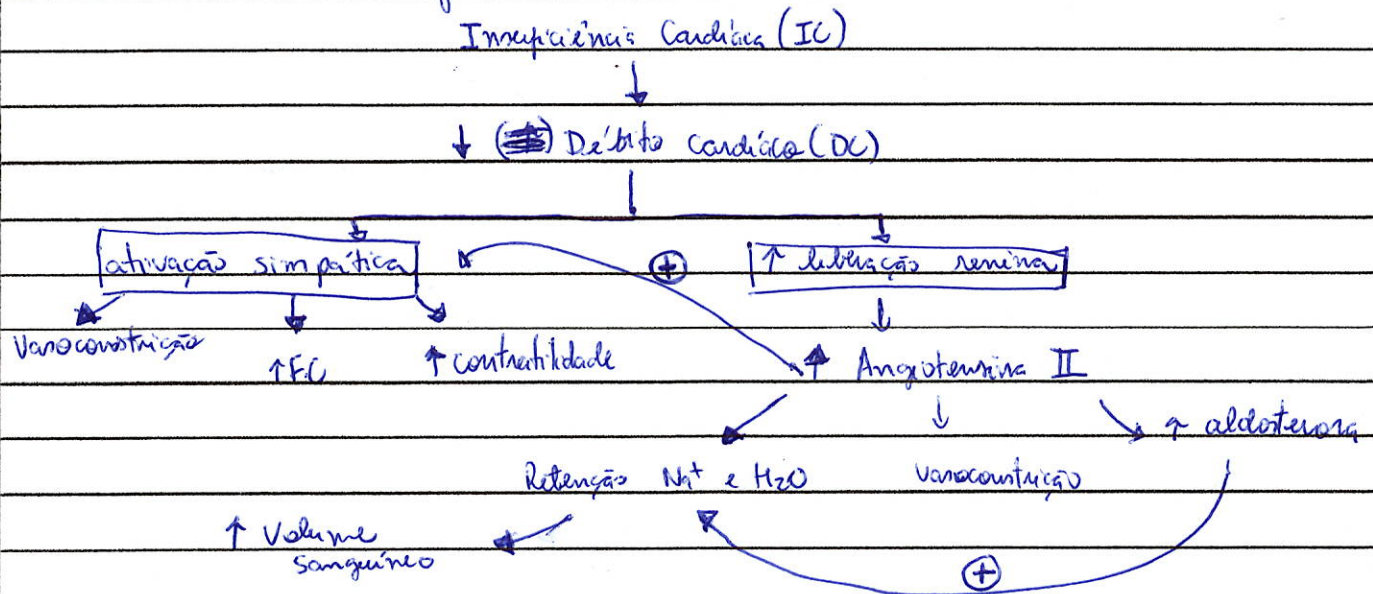 Insuficiência Cardíaca (IC)
↓
↓ Débito Cardíaco (DC)
ativação simpática ⊕ ↑ liberação renina
Vasoconstrição ↑FC ↑ contratilidade ↑ Angiotensina II
↑ aldosterona
Retenção Na⁺ e H₂O vasoconstrição
↑ Volume
sanguíneo
⊕